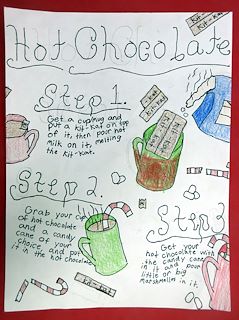 Kit-Kat
Kit-Kat
Hot Chocolate
Step 1.
Get a cup/mug and
put a kit-kat on top
of it, then poor hot
milk on it, melting
the kit-kat.
Kit-Kat
Step 2.
Grab your cup
of hot chocolate
and a candy
cane of your
choice, and put
it in the hot chocolate
Step 3
Get your
hot chocolate with
the candy cane
in it and poor
little or big
marshmellow in it.
kit-kat